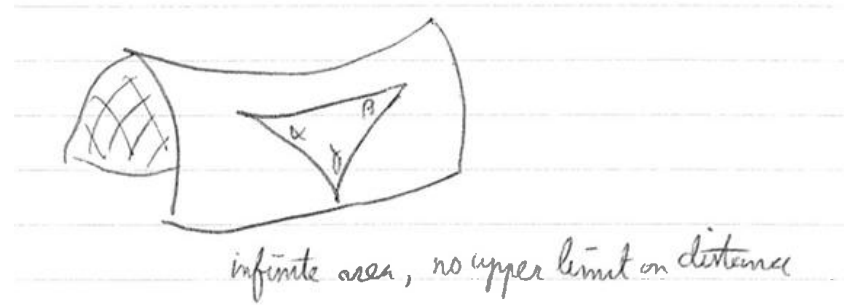 α β
γ
infinite area, no upper limit on distance